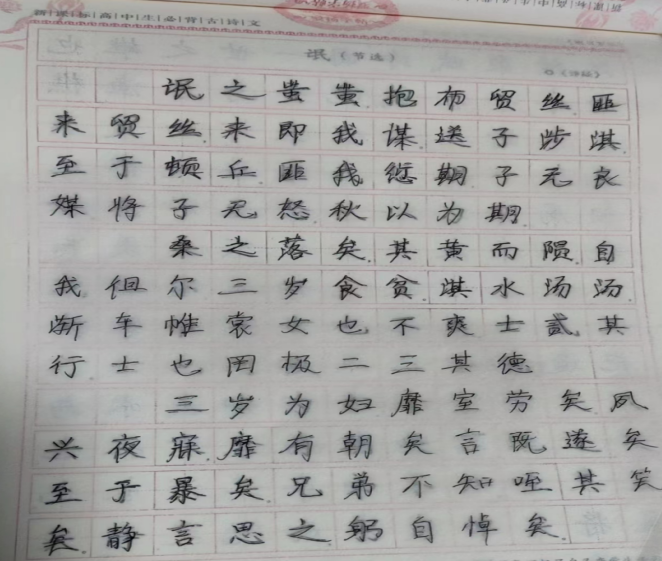 新课标高中生必背古诗文
氓（节选）
氓之蚩蚩抱布贸丝匪
来贸丝来即我谋送子涉淇
至于顿丘匪我愆期子无良
媒将子无怒秋以为期
桑之落矣其黄而陨自
我徂尔三岁食贫淇水汤汤
渐车帷裳女也不爽士贰其
行士也罔极二三其德
三岁为妇靡室劳矣夙
兴夜寐靡有朝矣言既遂矣
至于暴矣兄弟不知咥其笑
矣静言思之躬自悼矣